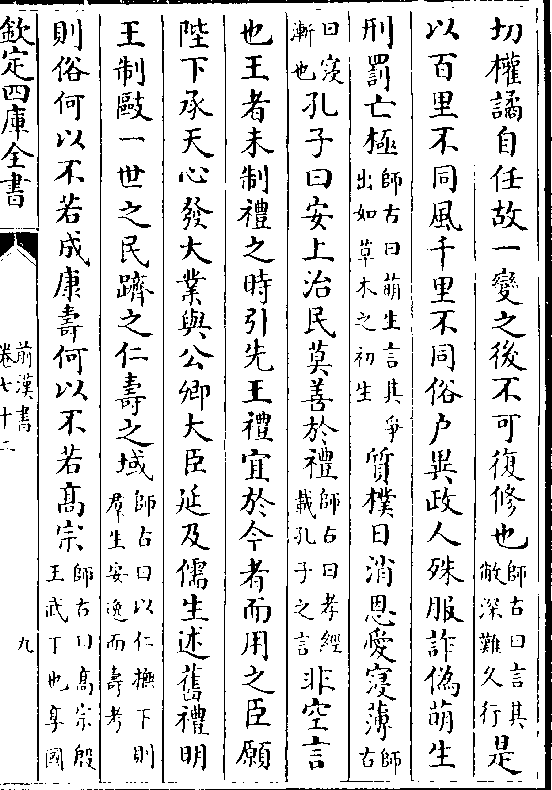 切權譎自任故一變之後不可復修也師古曰言其敝深難久行是
以百里不同風千里不同俗户異政人殊服詐偽萌生
刑罰亡極師古曰萌生言其爭出如草木之初生質樸日消恩愛寖薄師古
曰寖漸也孔子曰安上治民莫善於禮師古曰孝經載孔子之言非空言
也王者未制禮之時引先王禮宜於今者而用之臣願
陛下承天心發大業與公卿大臣延及儒生述舊禮明
王制敺一世之民躋之仁壽之域師古曰以仁撫下則羣生安逸而壽考
則俗何以不若成康壽何以不若髙宗師古曰髙宗殷王武丁也享國
欽定四庫全書
前漢書
卷七十二
九